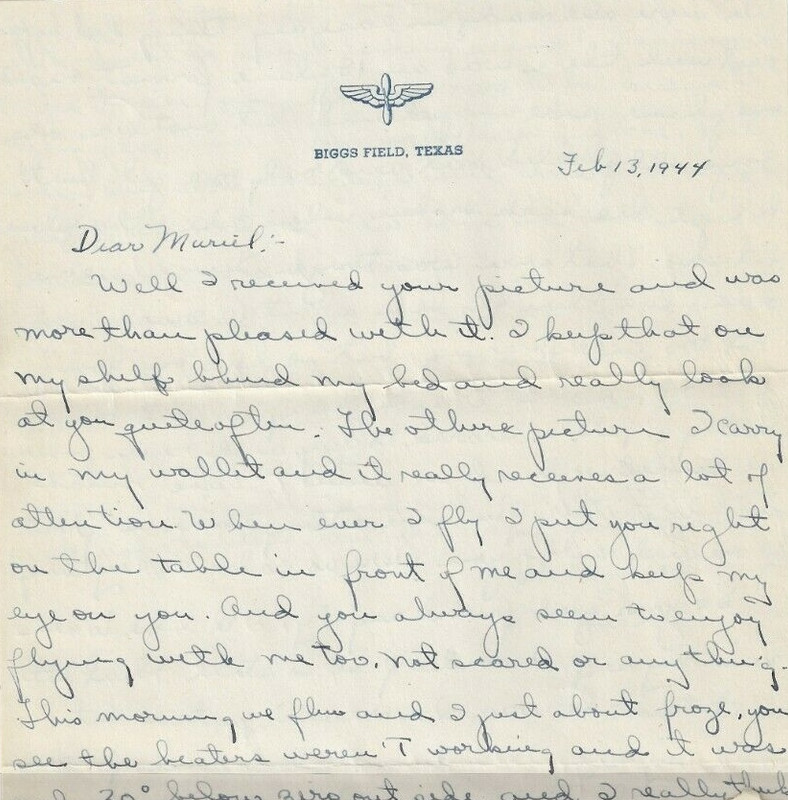 BIGGS FIELD, TEXAS
Feb 13, 1944
Dear Muriel:-
Well I received your picture and was
more than pleased with it. I keep that on
my shelf behind my bed and really look
at you quite often. The other picture I carry
in my wallet and it really receives a lot of
attention. When ever I fly I put you right
on the table in front of me and keep my
eye on you. And you always seem to enjoy
flying with me too, not scared or anything.
This morning we flew and I just about froze, you
see the heaters weren't working and it was
30° below zero out side and I really think